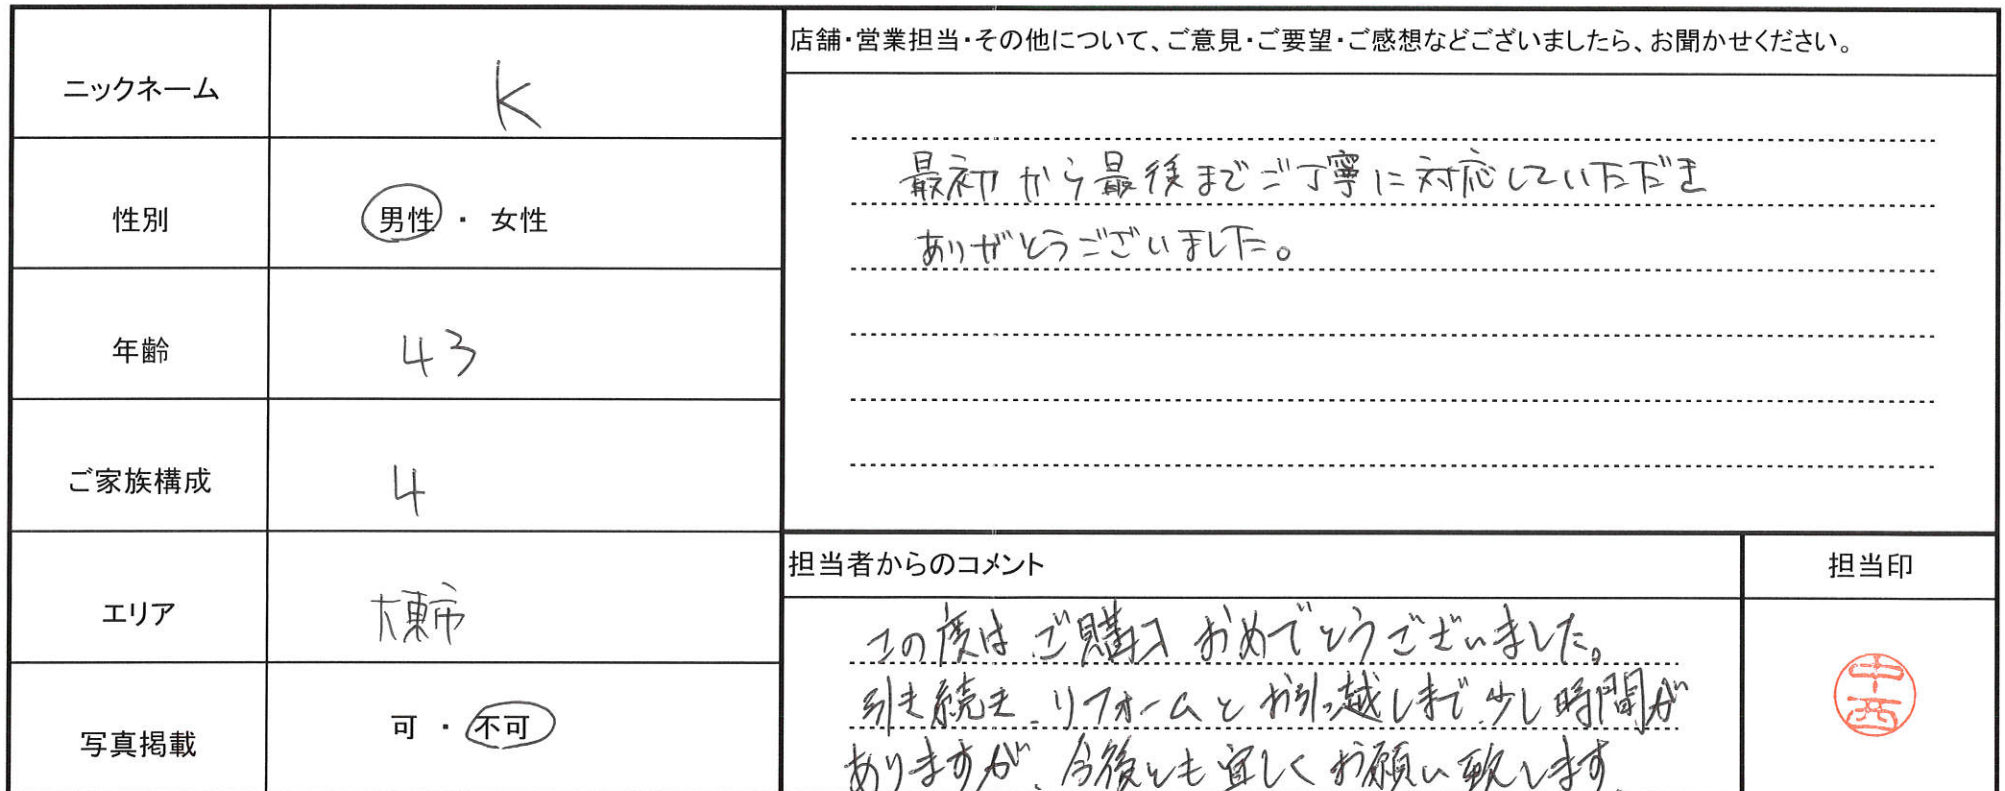 ニックネーム
K
性別
男性 ・ 女性
年齢
43
ご家族構成
4
エリア
大東市
写真掲載
可 ・ 不可
店舗・営業担当・その他について、ご意見・ご要望・ご感想などございましたら、お聞かせください。
最初から最後までご丁寧に対応していただき
ありがとうございました。
担当者からのコメント
この度はご購入おめでとうございました。
引き続き、リフォームとお引っ越しまで少し時間が
ありますが、今後とも宜しくお願い致します
担当印
中西